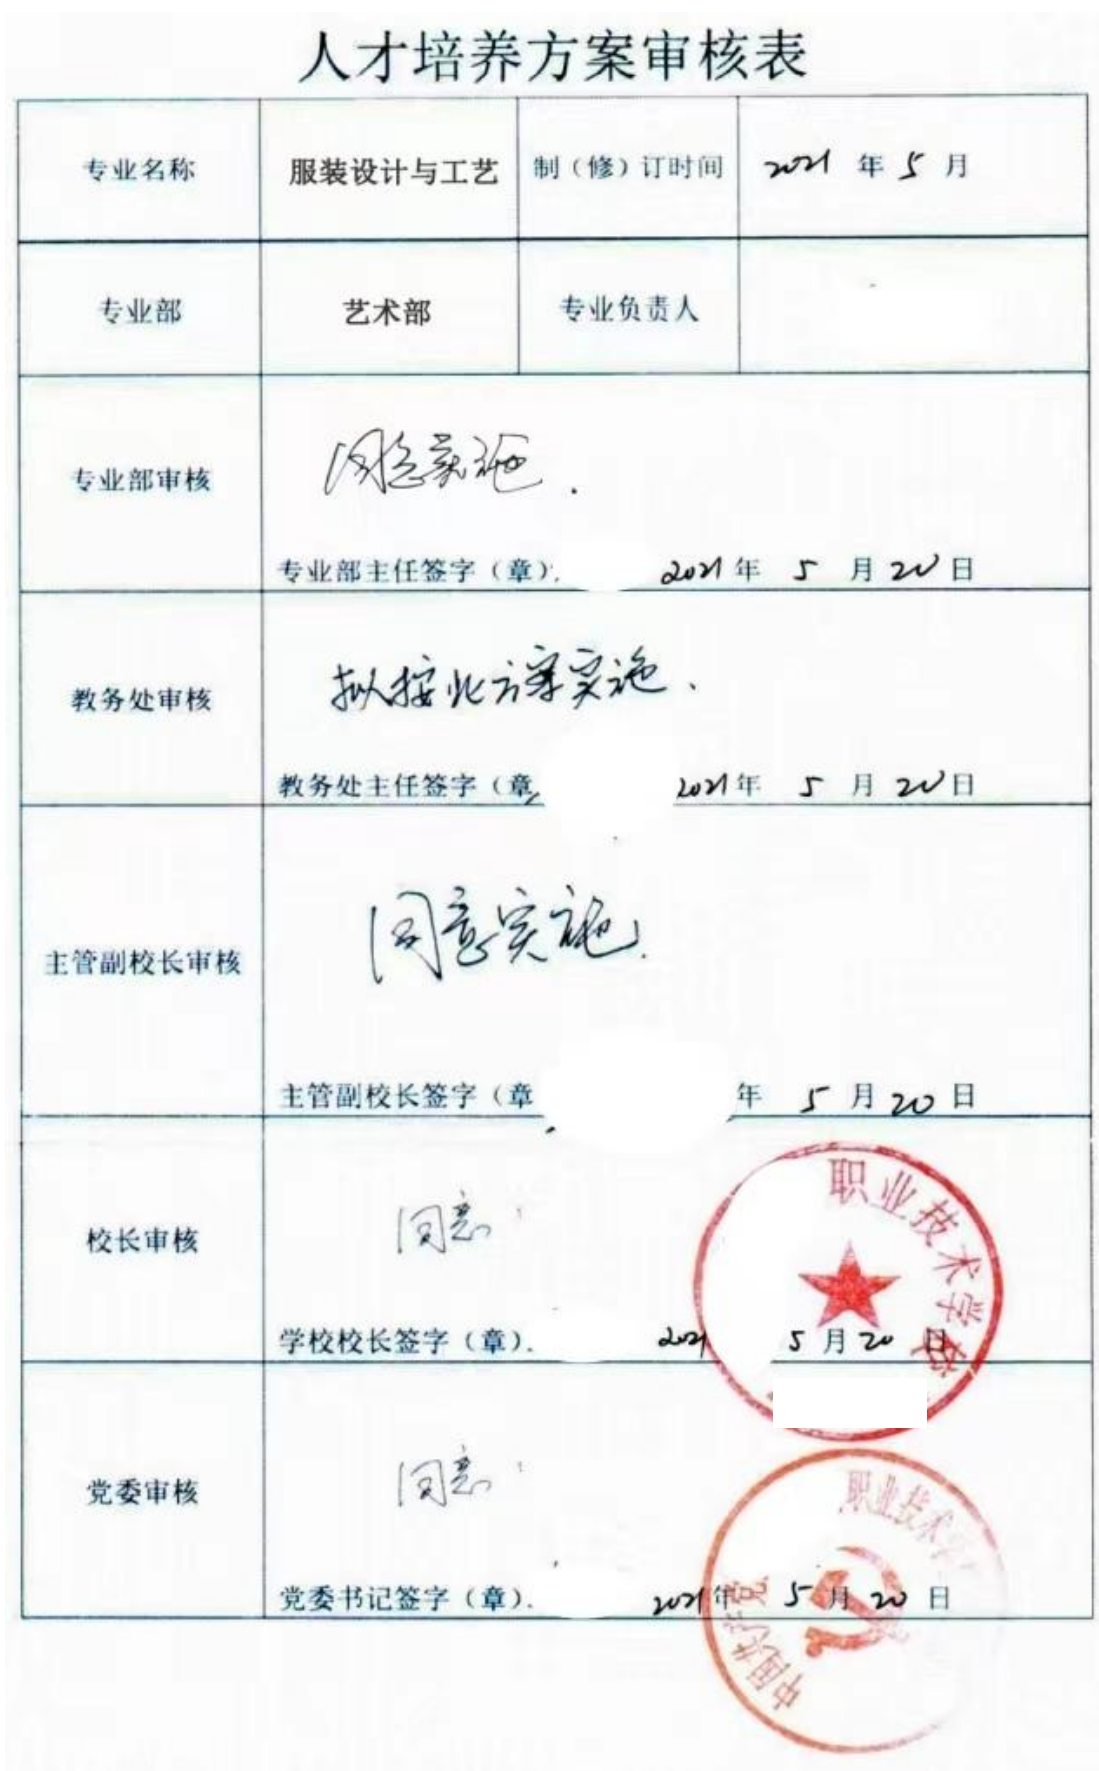 人才培养方案审核表
专业名称 服装设计与工艺 制（修）订时间 2021 年 5 月
专业部 艺术部 专业负责人
专业部审核 同意实施.
专业部主任签字（章）. 2021年 5 月 20 日
教务处审核 拟按此方案实施、
教务处主任签字（章 2021年 5 月 20 日
主管副校长审核 同意实施.
主管副校长签字（章 年 5 月 20 日
校长审核 同意
学校校长签字（章）. 2021 5 月 20 日
职业技术学校
党委审核 同意
党委书记签字（章）. 2021年 5 月 20 日
职业技术学
中国共产党